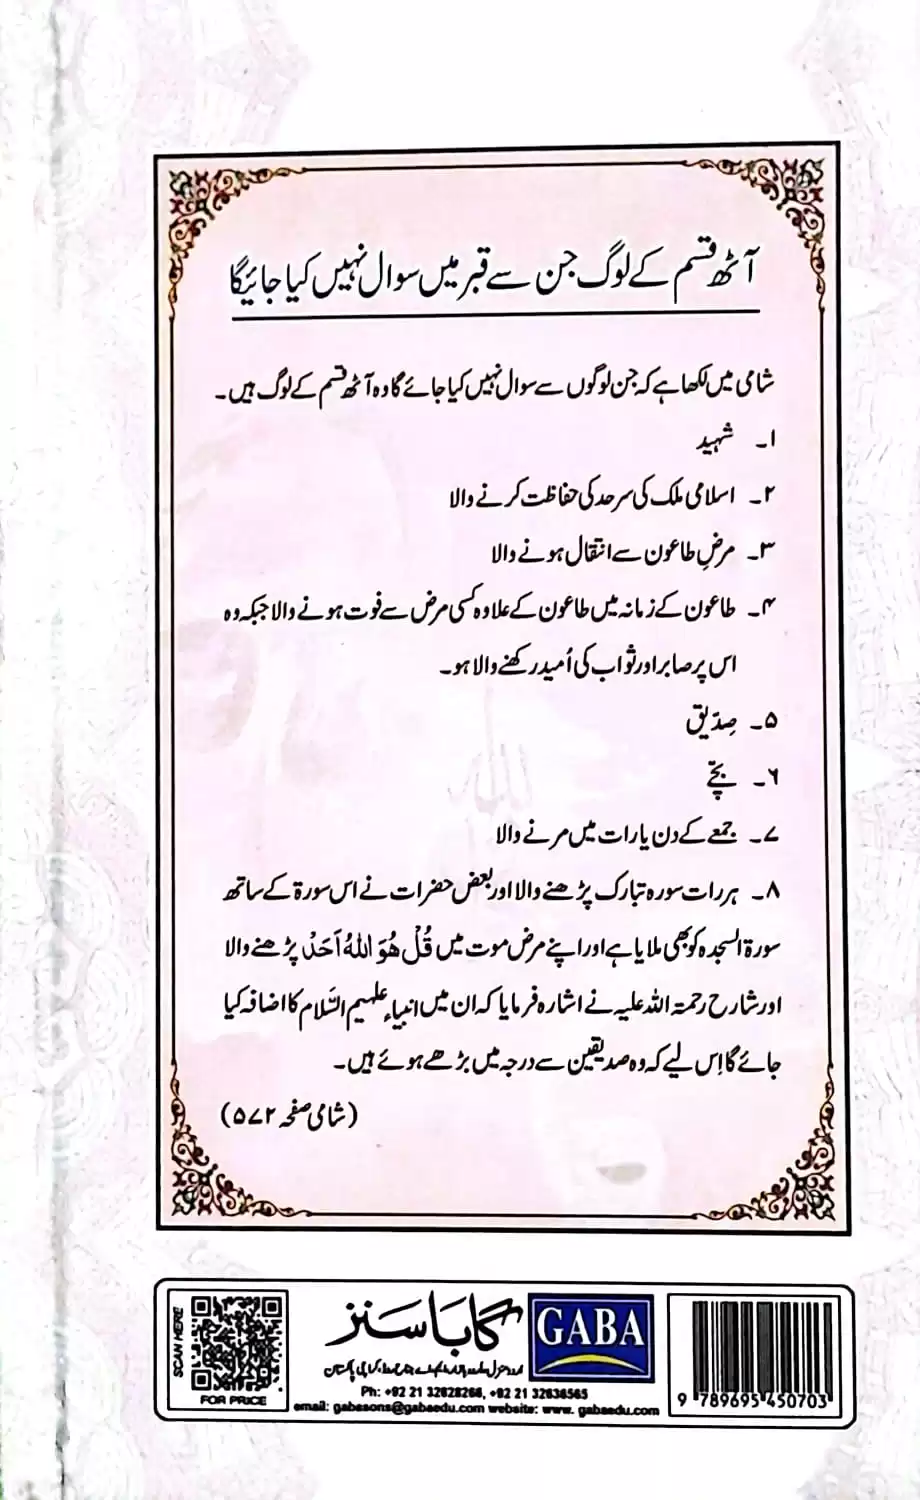 آٹھ قسم کے لوگ جن سے قبر میں سوال نہیں کیا جائیگا
شامی میں لکھا ہے کہ جن لوگوں سے سوال نہیں کیا جائے گا وہ آٹھ قسم کے لوگ ہیں۔
۱۔ شہید
۲۔ اسلامی ملک کی سرحد کی حفاظت کرنے والا
۳۔ مرضِ طاعون سے انتقال ہونے والا
۴۔ طاعون کے زمانہ میں طاعون کے علاوہ کسی مرض سے فوت ہونے والا جبکہ وہ
اس پر صابر اور ثواب کی اُمید رکھنے والا ہو۔
۵۔ صِدّیق
۶۔ بچّے
۷۔ جمعے کے دن یا رات میں مرنے والا
۸۔ ہر رات سورہ تبارک پڑھنے والا اور بعض حضرات نے اس سورۃ کے ساتھ
سورۃ السجدہ کو بھی ملایا ہے اور اپنے مرض موت میں قُلْ هُوَ اللّٰهُ اَحَدٌ پڑھنے والا
اور شارح رحمۃ اللہ علیہ نے اشارہ فرمایا کہ ان میں انبیاء علیہم السَّلام کا اضافہ کیا
جائے گا اِس لیے کہ وہ صدیقین سے درجہ میں بڑھے ہوئے ہیں۔
(شامی صفحہ ۵۷۲)
الله
SCAN HERE
FOR PRICE
گابا سنز
GABA
Ph: +92 21 32628266, +92 21 32636565
email: gabasons@gabaedu.com website: www. gabaedu.com
9 789695 450703